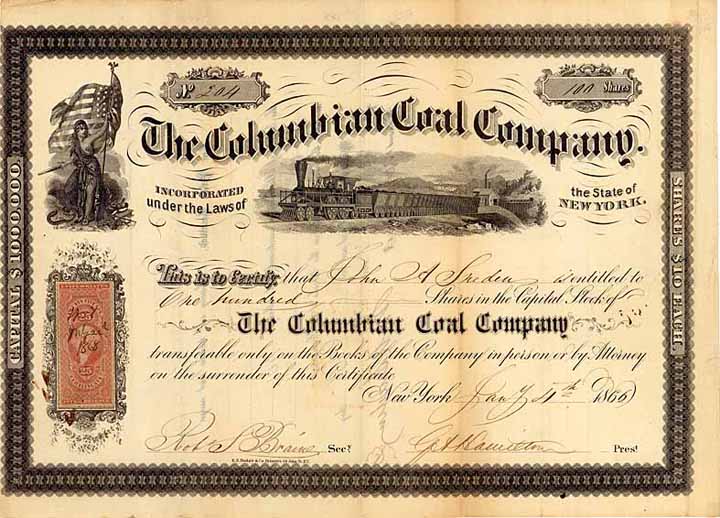 No. 204
100 Shares
The Columbian Coal Company.
INCORPORATED under the Laws of
the State of NEW YORK.
CAPITAL $1000,000.
SHARES $10 EACH.
This is to Certify, that John A is entitled to
One hundred Shares in the Capital Stock of
The Columbian Coal Company
transferable only on the Books of the Company in person or by Attorney
on the surrender of this Certificate
New York Jany 4th 1866
Robt S Secy
Hamilton Prest
25